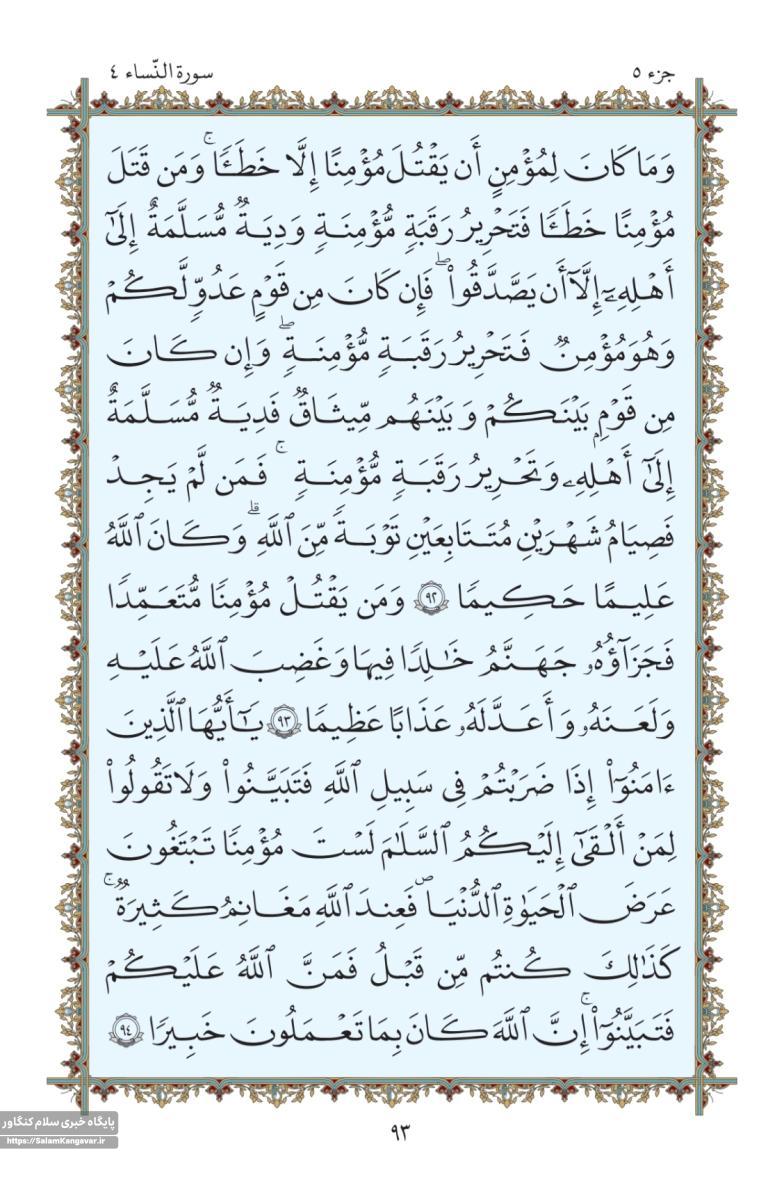 جزء ٥
سورة النّساء ٤
وَمَا كَانَ لِمُؤْمِنٍ أَن يَقْتُلَ مُؤْمِنًا إِلَّا خَطَـًٔا ۚ وَمَن قَتَلَ
مُؤْمِنًا خَطَـًٔا فَتَحْرِيرُ رَقَبَةٍ مُّؤْمِنَةٍ وَدِيَةٌ مُّسَلَّمَةٌ إِلَىٰٓ
أَهْلِهِۦٓ إِلَّآ أَن يَصَّدَّقُوا۟ ۖ فَإِن كَانَ مِن قَوْمٍ عَدُوٍّ لَّكُمْ
وَهُوَ مُؤْمِنٌ فَتَحْرِيرُ رَقَبَةٍ مُّؤْمِنَةٍ ۖ وَإِن كَانَ
مِن قَوْمٍۭ بَيْنَكُمْ وَبَيْنَهُم مِّيثَـٰقٌ فَدِيَةٌ مُّسَلَّمَةٌ
إِلَىٰٓ أَهْلِهِۦ وَتَحْرِيرُ رَقَبَةٍ مُّؤْمِنَةٍ ۚ فَمَن لَّمْ يَجِدْ
فَصِيَامُ شَهْرَيْنِ مُتَتَابِعَيْنِ تَوْبَةً مِّنَ ٱللَّهِ ۗ وَكَانَ ٱللَّهُ
عَلِيمًا حَكِيمًا ٩٢ وَمَن يَقْتُلْ مُؤْمِنًا مُّتَعَمِّدًا
فَجَزَآؤُهُۥ جَهَنَّمُ خَـٰلِدًا فِيهَا وَغَضِبَ ٱللَّهُ عَلَيْهِ
وَلَعَنَهُۥ وَأَعَدَّ لَهُۥ عَذَابًا عَظِيمًا ٩٣ يَـٰٓأَيُّهَا ٱلَّذِينَ
ءَامَنُوٓا۟ إِذَا ضَرَبْتُمْ فِى سَبِيلِ ٱللَّهِ فَتَبَيَّنُوا۟ وَلَا تَقُولُوا۟
لِمَنْ أَلْقَىٰٓ إِلَيْكُمُ ٱلسَّلَـٰمَ لَسْتَ مُؤْمِنًا تَبْتَغُونَ
عَرَضَ ٱلْحَيَوٰةِ ٱلدُّنْيَا ۖ فَعِندَ ٱللَّهِ مَغَانِمُ كَثِيرَةٌ ۚ
كَذَٰلِكَ كُنتُم مِّن قَبْلُ فَمَنَّ ٱللَّهُ عَلَيْكُمْ
فَتَبَيَّنُوٓا۟ ۚ إِنَّ ٱللَّهَ كَانَ بِمَا تَعْمَلُونَ خَبِيرًا ٩٤
٩٣
پایگاه خبری سلام کنگاور
https://SalamKangavar.ir